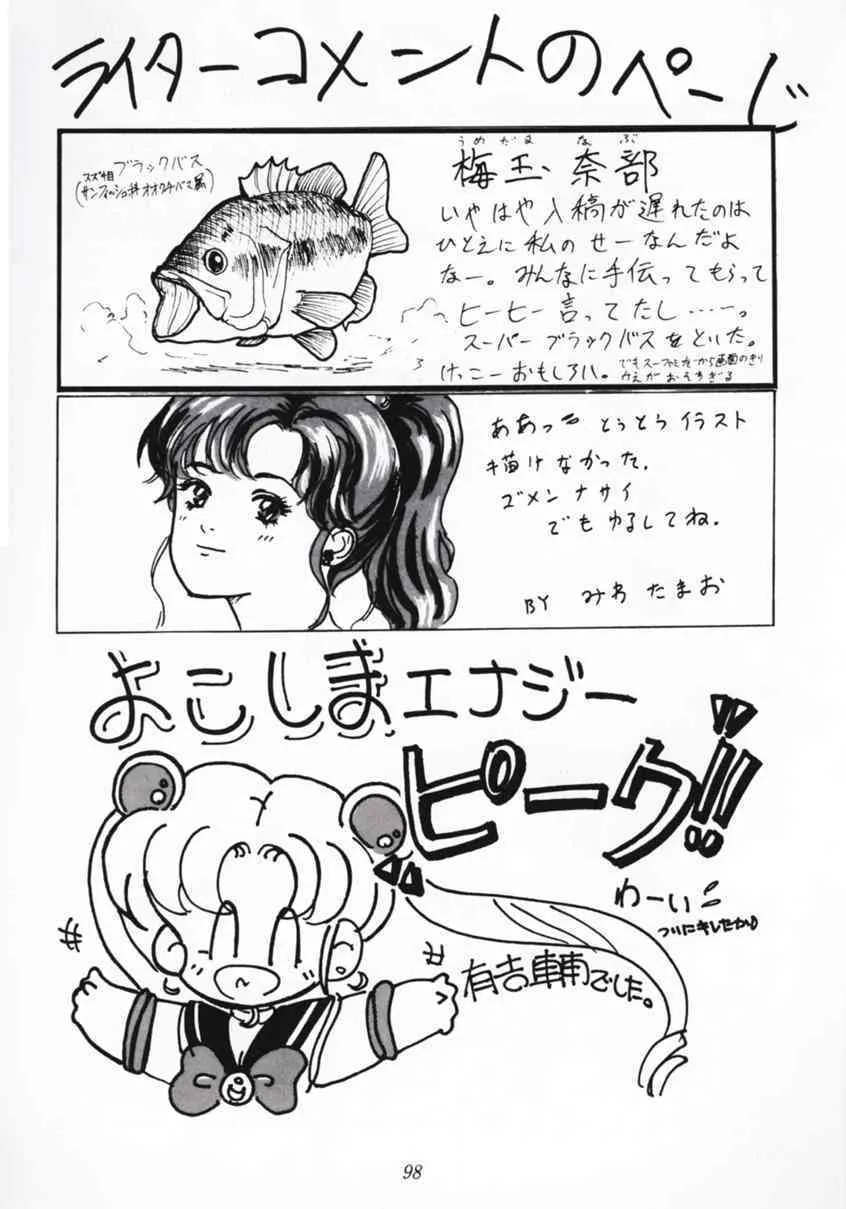 ライターコメントのページ
ブラックバス
スズキ目
(サンフィッシュ科オオクチバス属)
うめだま なぶ
梅玉 奈部
いやはや入稿が遅れたのは
ひとえに私のせーなんだよ
なー。みんなに手伝ってもらって
ヒーヒー言ってたし……。
スーパーブラックバスをといた。
けっこーおもしろい。
でもスーファミだから画面のきり
かえがおそすぎる
ああっ とうとうイラスト
描けなかった。
ゴメンナサイ
でもゆるしてね。
BY みわ たまお
よこしまエナジー
ピーク!!
わーい
ついにキレたか♪
有吉 でした。
98